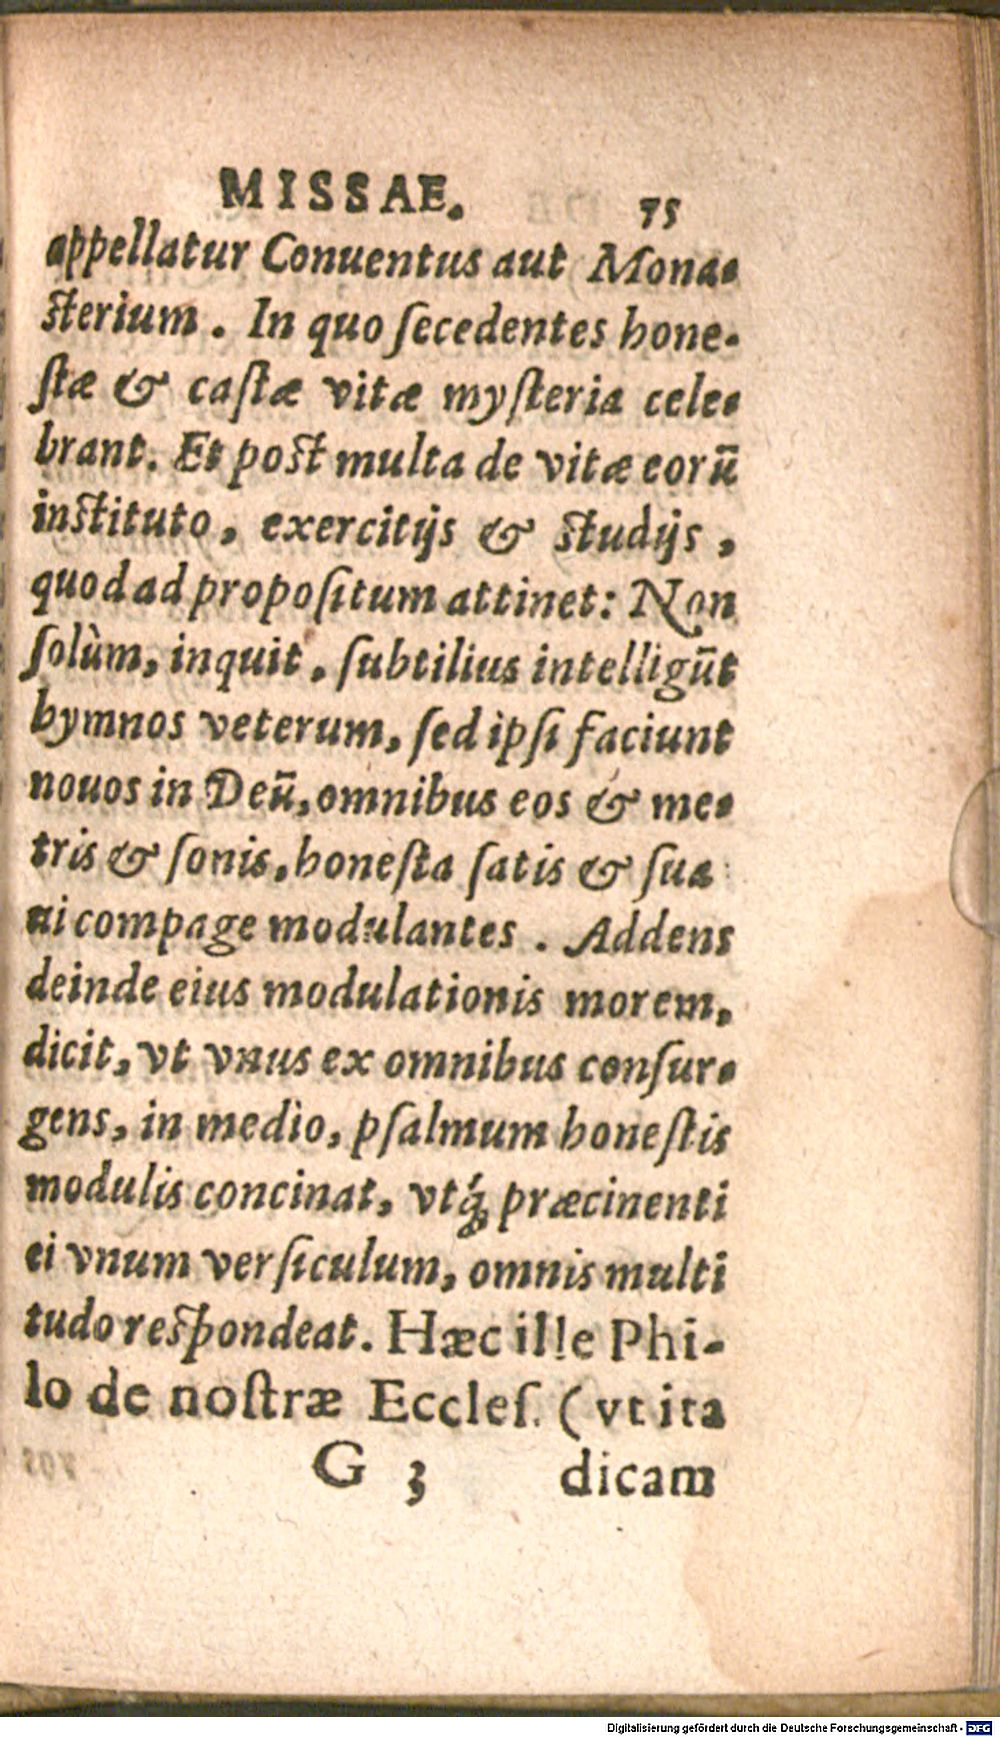 MISSAE. 75
appellatur Conuentus aut Mona-
ſterium. In quo ſecedentes hone-
ſtæ & caſtæ vitæ myſteria cele-
brant. Et poſt multa de vitæ eorū
inſtituto, exercitijs & ſtudijs,
quod ad propoſitum attinet: Non
ſolùm, inquit, ſubtilius intelligūt
hymnos veterum, ſed ipſi faciunt
nouos in Deū, omnibus eos & me-
tris & ſonis, honeſta ſatis & ſua
ui compage modulantes. Addens
deinde eius modulationis morem,
dicit, vt vnus ex omnibus conſur-
gens, in medio, pſalmum honeſtis
modulis concinat, vtq́; præcinenti
ei vnum verſiculum, omnis multi
tudo reſpondeat. Hæc ille Phi-
lo de noſtræ Eccleſ. (vt ita
G 3 dicam
Digitalisierung gefördert durch die Deutsche Forschungsgemeinschaft - DFG